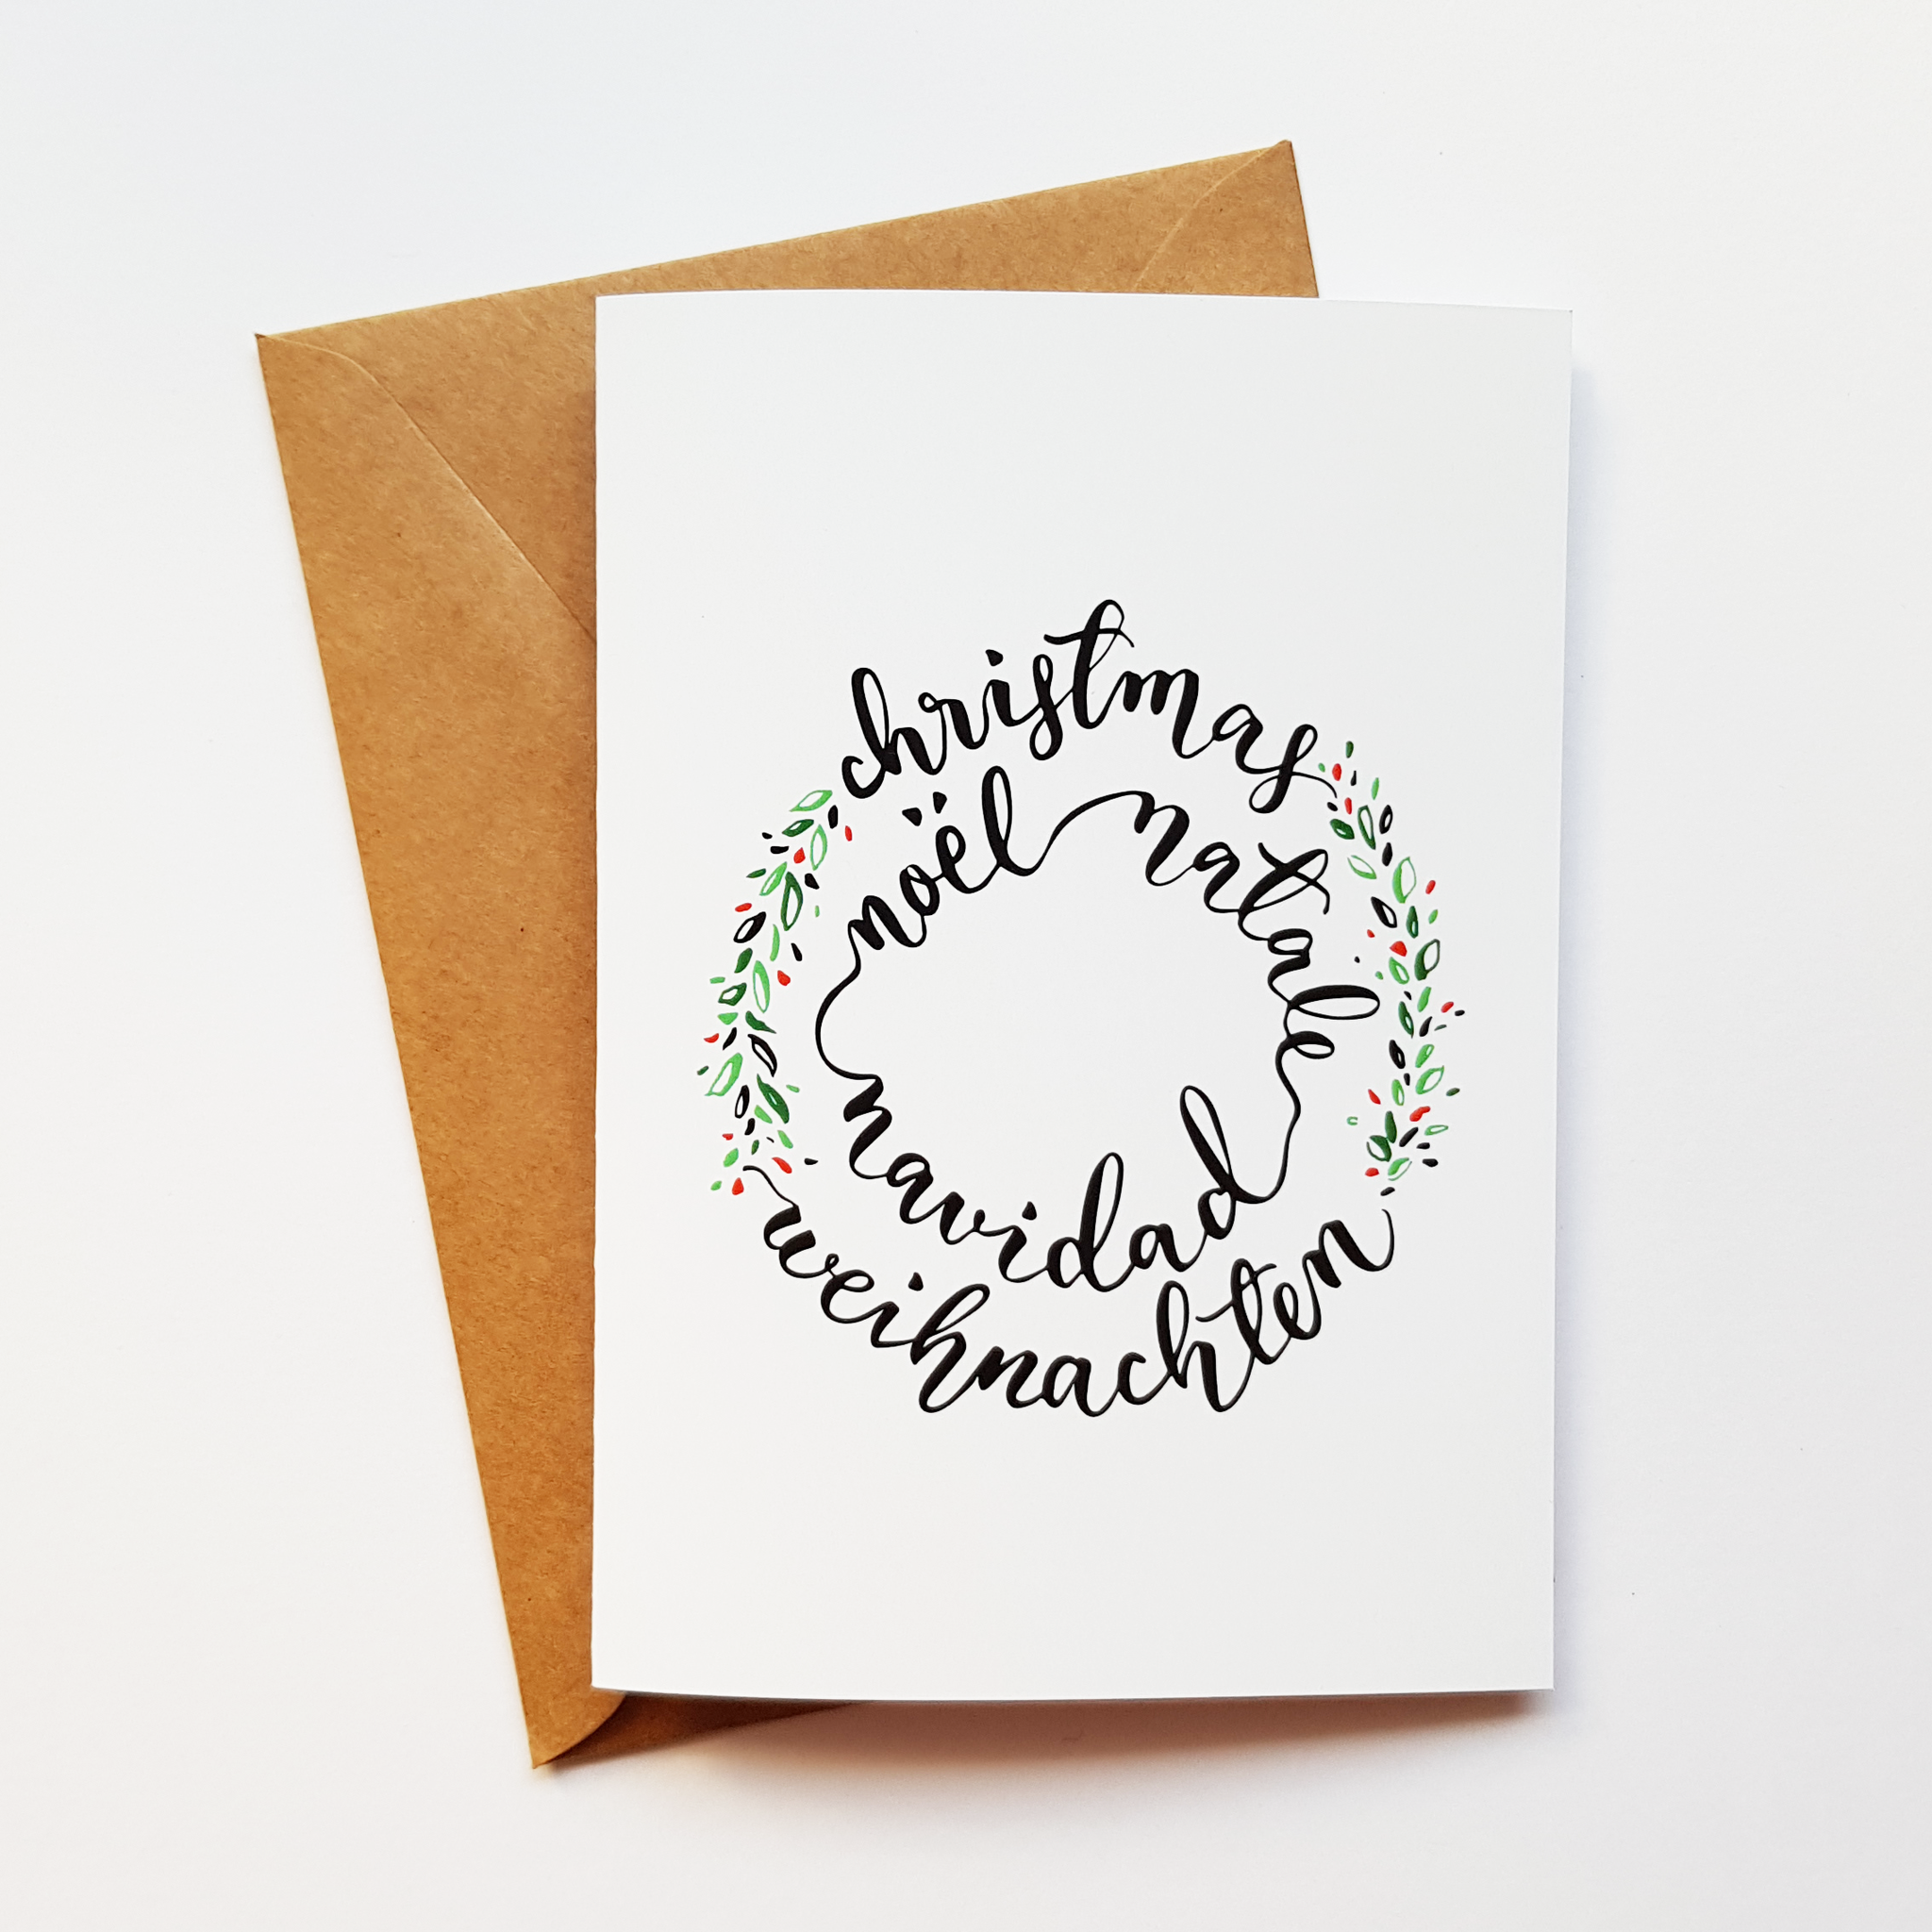 christmas
noël natale
navidad
weihnachten